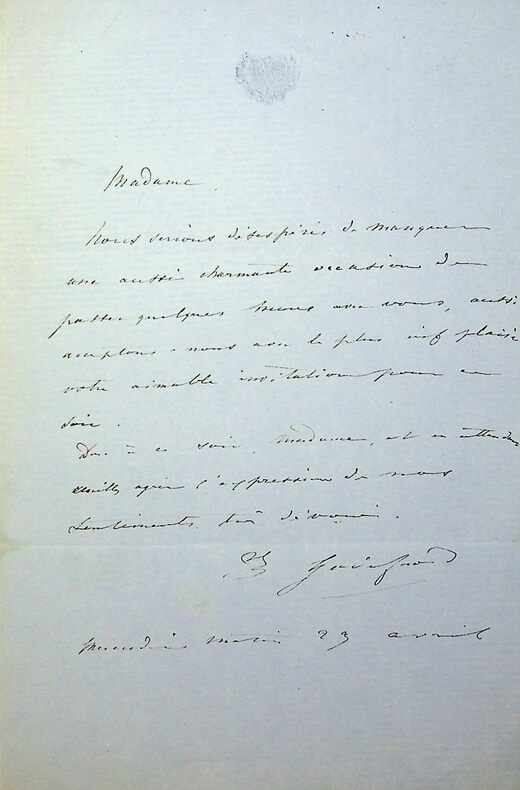 Madame.
Nous serions désespérés de manquer
une aussi charmante occasion de
passer quelques heures avec vous, aussi
acceptons-nous avec le plus vif plaisir
votre aimable invitation pour ce
soir.
Donc à ce soir, Madame, et en attendant
veuillez agréer l'expression de nos
sentiments très dévoués.
23 avril